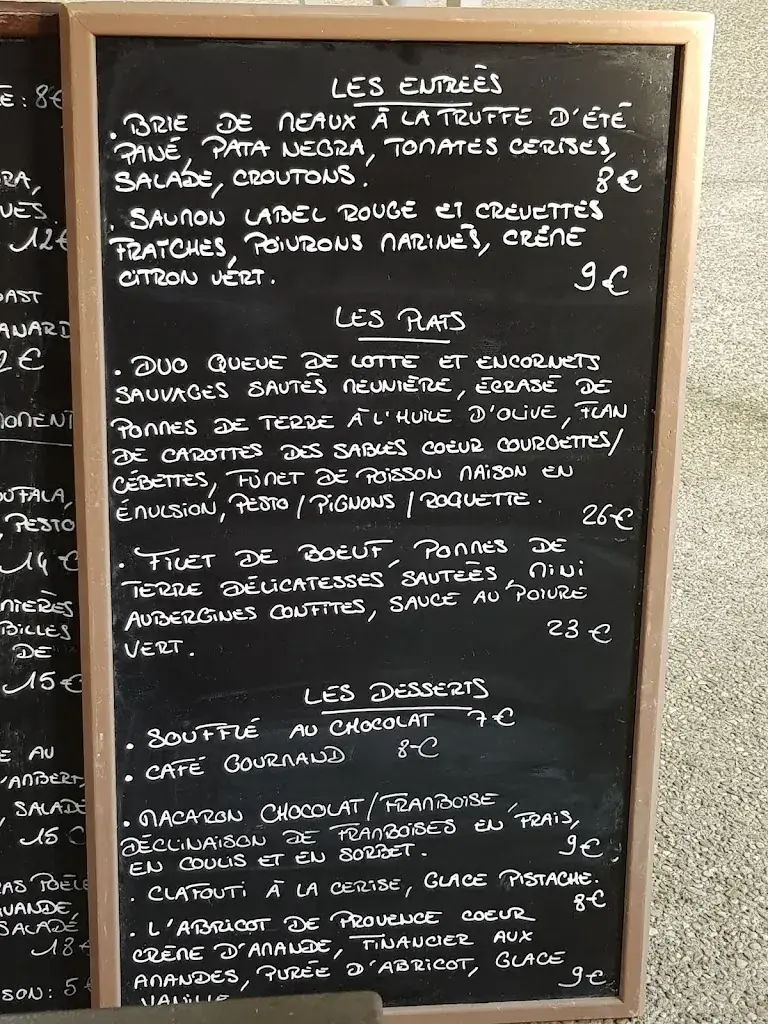 E : 8€
RA,
VES.
12€
OAST
ANARD
2€
MOMENT
UFALA,
PESTO
14 €
NIÈRES
BILLES
DE
15€
E AU
'AMBERT,
SALADE
15 €
RAS POÊLÉ
SALADE
18€
SON : 5
LES ENTREÉS
. BRIE DE MEAUX À LA TRUFFE D'ÉTÉ
PANÉ, PATA NEGRA, TOMATES CERISES,
SALADE, CROUTONS. 8€
. SAUMON LABEL ROUGE ET CREVETTES
FRAÎCHES, POIVRONS MARINÉS, CRÈME
CITRON VERT. 9€
LES PLATS
. DUO QUEUE DE LOTTE ET ENCORNETS
SAUVAGES SAUTÉS MEUNIÈRE, ÉCRASÉ DE
POMMES DE TERRE À L'HUILE D'OLIVE, FLAN
DE CAROTTES DES SABLES COEUR COURGETTES/
CÉBETTES, FUMET DE POISSON MAISON EN
ÉMULSION, PESTO / PIGNONS / ROQUETTE. 26€
. FILET DE BOEUF, POMMES DE
TERRE DÉLICATESSES SAUTEÉS, MINI
AUBERGINES CONFITES, SAUCE AU POIVRE
VERT. 23€
LES DESSERTS
. SOUFFLÉ AU CHOCOLAT 7€
. CAFÉ GOURMAND 8€
. MACARON CHOCOLAT/FRAMBOISE,
DÉCLINAISON DE FRAMBOISES EN FRAIS,
EN COULIS ET EN SORBET. 9€
. CLAFOUTI À LA CERISE, GLACE PISTACHE.
8€
. L'ABRICOT DE PROVENCE COEUR
CRÈME D'AMANDE, FINANCIER AUX
AMANDES, PURÉE D'ABRICOT, GLACE
VANILLE 9€